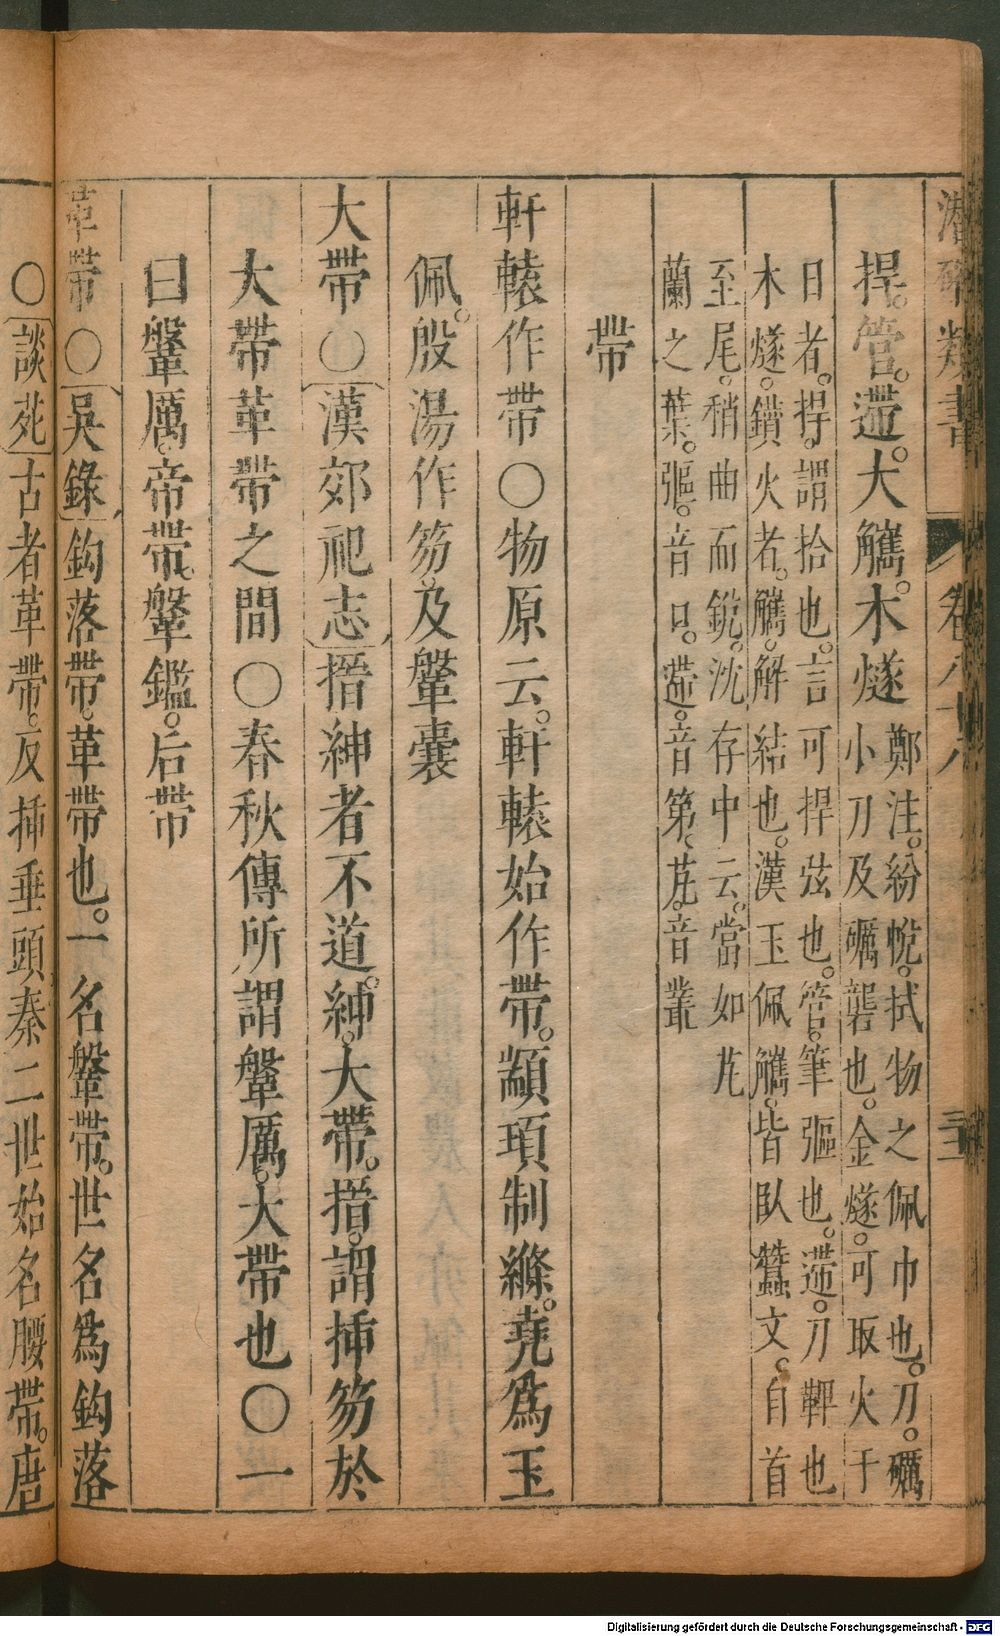 潛確類書 卷八十八 三十二
捍。管。遰。大觿。木燧 鄭注。紛帨。拭物之佩巾也。刀。礪
小刀及礪礱也。金燧。可取火于
日者。捍。謂拾也。言可捍弦也。管。筆彄也。遰。刀鞞也
木燧。鑽火者。觿。解結也。漢玉佩觿。皆臥蠶文。自首
至尾。稍曲而銳。沈存中云。當如芄
蘭之葉。彄。音口。遰。音第。芄。音叢
帶
軒轅作帶〇物原云。軒轅始作帶。顓頊制絛。堯為玉
佩。殷湯作笏。及鞶囊
大帶〇漢郊祀志搢紳者不道。紳。大帶。搢。謂揷笏於
大帶革帶之間〇春秋傳所謂鞶厲。大帶也〇一
曰鞶厲。帝帶。鞶鑑。后帶
革帶〇吳錄鈎落帶。革帶也。一名鞶帶。世名為鈎落
〇談苑古者革帶。反揷垂頭秦二世始名腰帶。唐
Digitalisierung gefördert durch die Deutsche Forschungsgemeinschaft - DFG